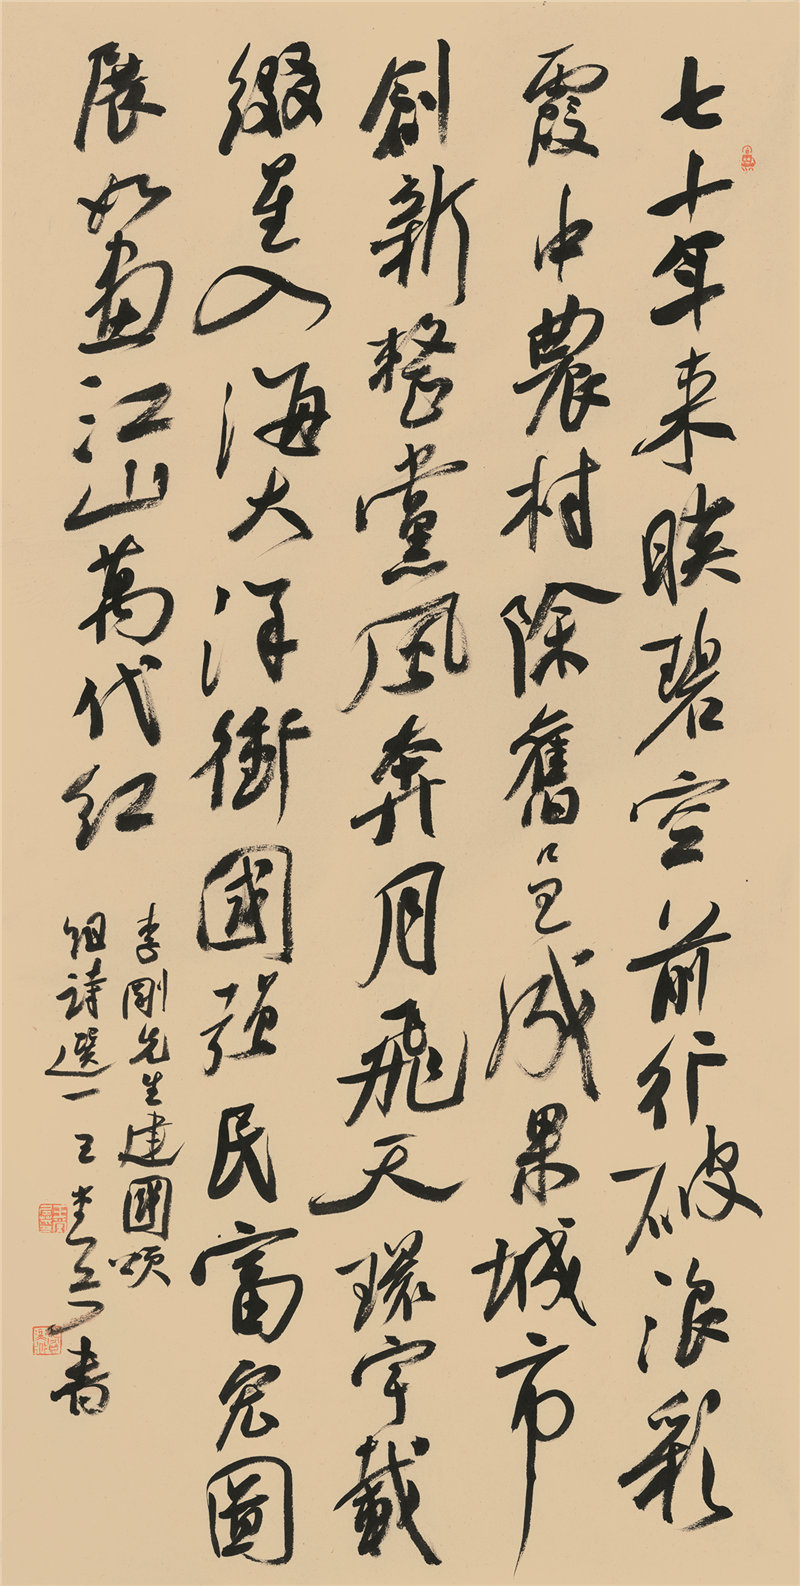 七十年来暎碧空前行破浪彩
霞中農村除舊呈成果城市
創新整黨風奔月飛天環宇載
綴星入海大洋衝國强民富宏圖
展如画江山萬代红
李剛先生建國頌
組詩選一王書